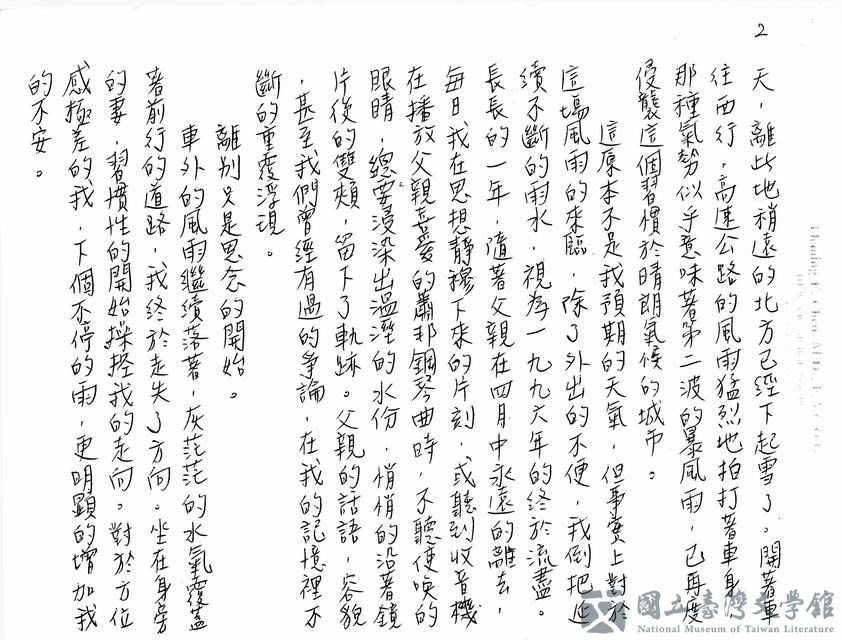 2
天，離此地稍遠的北方已經下起雪了。開著車
往西行，高速公路的風雨猛烈地拍打著車身
那種氣勢似乎意味著第二波的暴風雨，已再度
侵襲這個習慣於晴朗氣候的城市。
這原本不是我預期的天氣，但事實上對於
這場風雨的來臨，除了外出的不便，我倒把近
續不斷的雨水，視為一九九六年的終於流盡。
長長的一年，隨著父親在四月中永遠的離去，
每日我在思想靜穆下來的片刻，或聽到收音機
在播放父親喜愛的蕭邦鋼琴曲時，不聽使喚的
眼睛，總要浸染出溫溼的水份，悄悄的沿著鏡
片後的雙頰，留下了軌跡。父親的話語，容貌
，甚至我們曾經有過的爭論，在我的記憶裡不
斷的重覆浮現。
離別只是思念的開始。
車外的風雨繼續落著，灰茫茫的水氣覆蓋
著前行的道路，我終於走失了方向。坐在身旁
的妻，習慣性的開始操控我的走向。對於方位
感極差的我，下個不停的雨，更明顯的增加我
的不安。
國立臺灣文學館
National Museum of Taiwan Literature